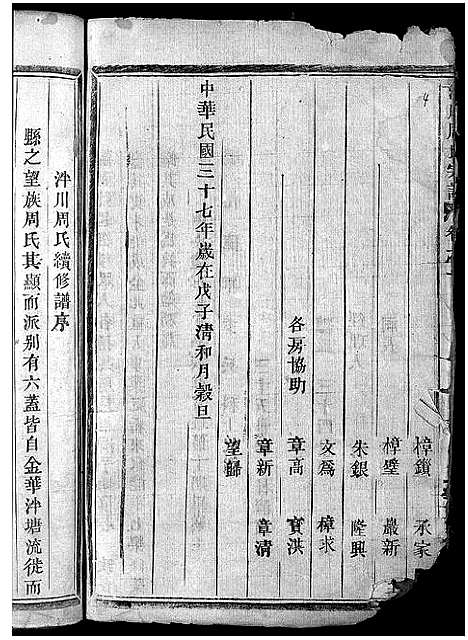 樟鎖 承家
樟璧 嚴新
朱銀 隆興
文為 樟求
各房協助 章高 寶洪
章新 章清
望歸
中華民國三十七年歲在戊子清和月穀旦
泮川周氏續修譜序
縣之望族周氏其顯而派别有六蓋皆自金華泮塘流徙而